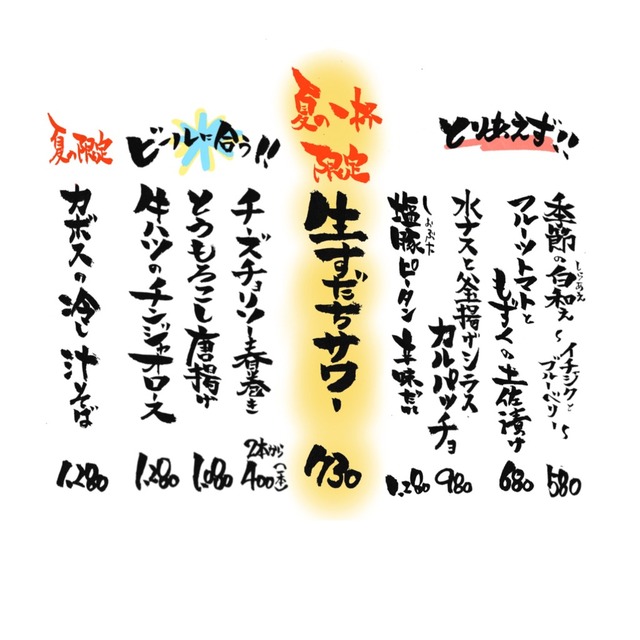 とりあえず!!
季節の白和え
しらあえ
〜イチジクと
ブルーベリー〜
580
フルーツトマトと
もずくの土佐漬け
680
水ナスと釜揚げシラス
カルパッチョ
980
塩豚ピータン 辛味だれ
しおぶた
1,280
夏の一杯
限定
生すだちサワー
730
ビールに合う!!
チーズチョリソー春巻き
2本から
400(1本)
とうもろこし唐揚げ
1,080
牛ハツのチンジャオロース
1,280
夏の限定
カボスの冷し汁そば
1,280